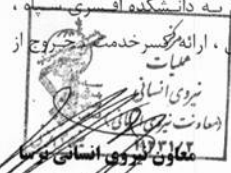 به دانشکده افسری سپاه ،
، ارائه کسر خدمت و خروج از
مرکز
عملیات
نیروی انسانی
(معاونت نیروی انسانی)
معاون نیروی انسانی نرسا